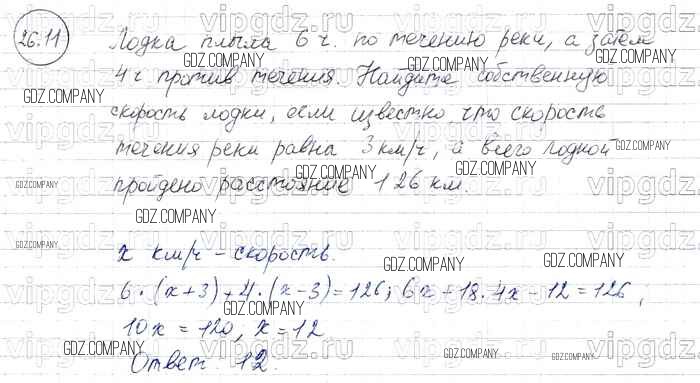 26.11
Лодка плыла 6 ч. по течению реки, а затем
4 ч против течения. Найдите собственную
скорость лодки, если известно, что скорость
течения реки равна 3 км/ч, а всего лодкой
пройдено расстояние 126 км.
x км/ч - скорость.
6·(x+3)+4·(x-3)=126; 6x+18·4x-12=126;
10x=120, x=12
Ответ. 12.
GDZ.COMPANY
vipgdz.ru